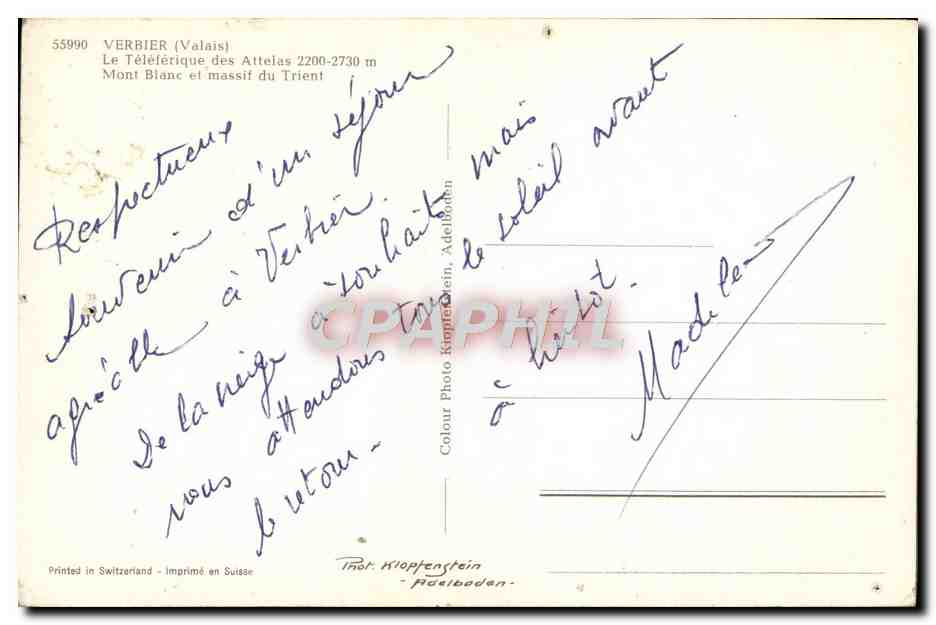 55990 VERBIER (Valais)
Le Téléférique des Attelas 2200-2730 m
Mont Blanc et massif du Trient
Respectueux
souvenir d'un séjour
agréable à Verbier.
De la neige à souhaits mais
nous attendons tous le soleil avant
le retour -
à bientot.
Madeleine
Colour Photo Klopfenstein, Adelboden
CPAPHIL
Printed in Switzerland - Imprimé en Suisse
Phot. Klopfenstein
- Adelboden -